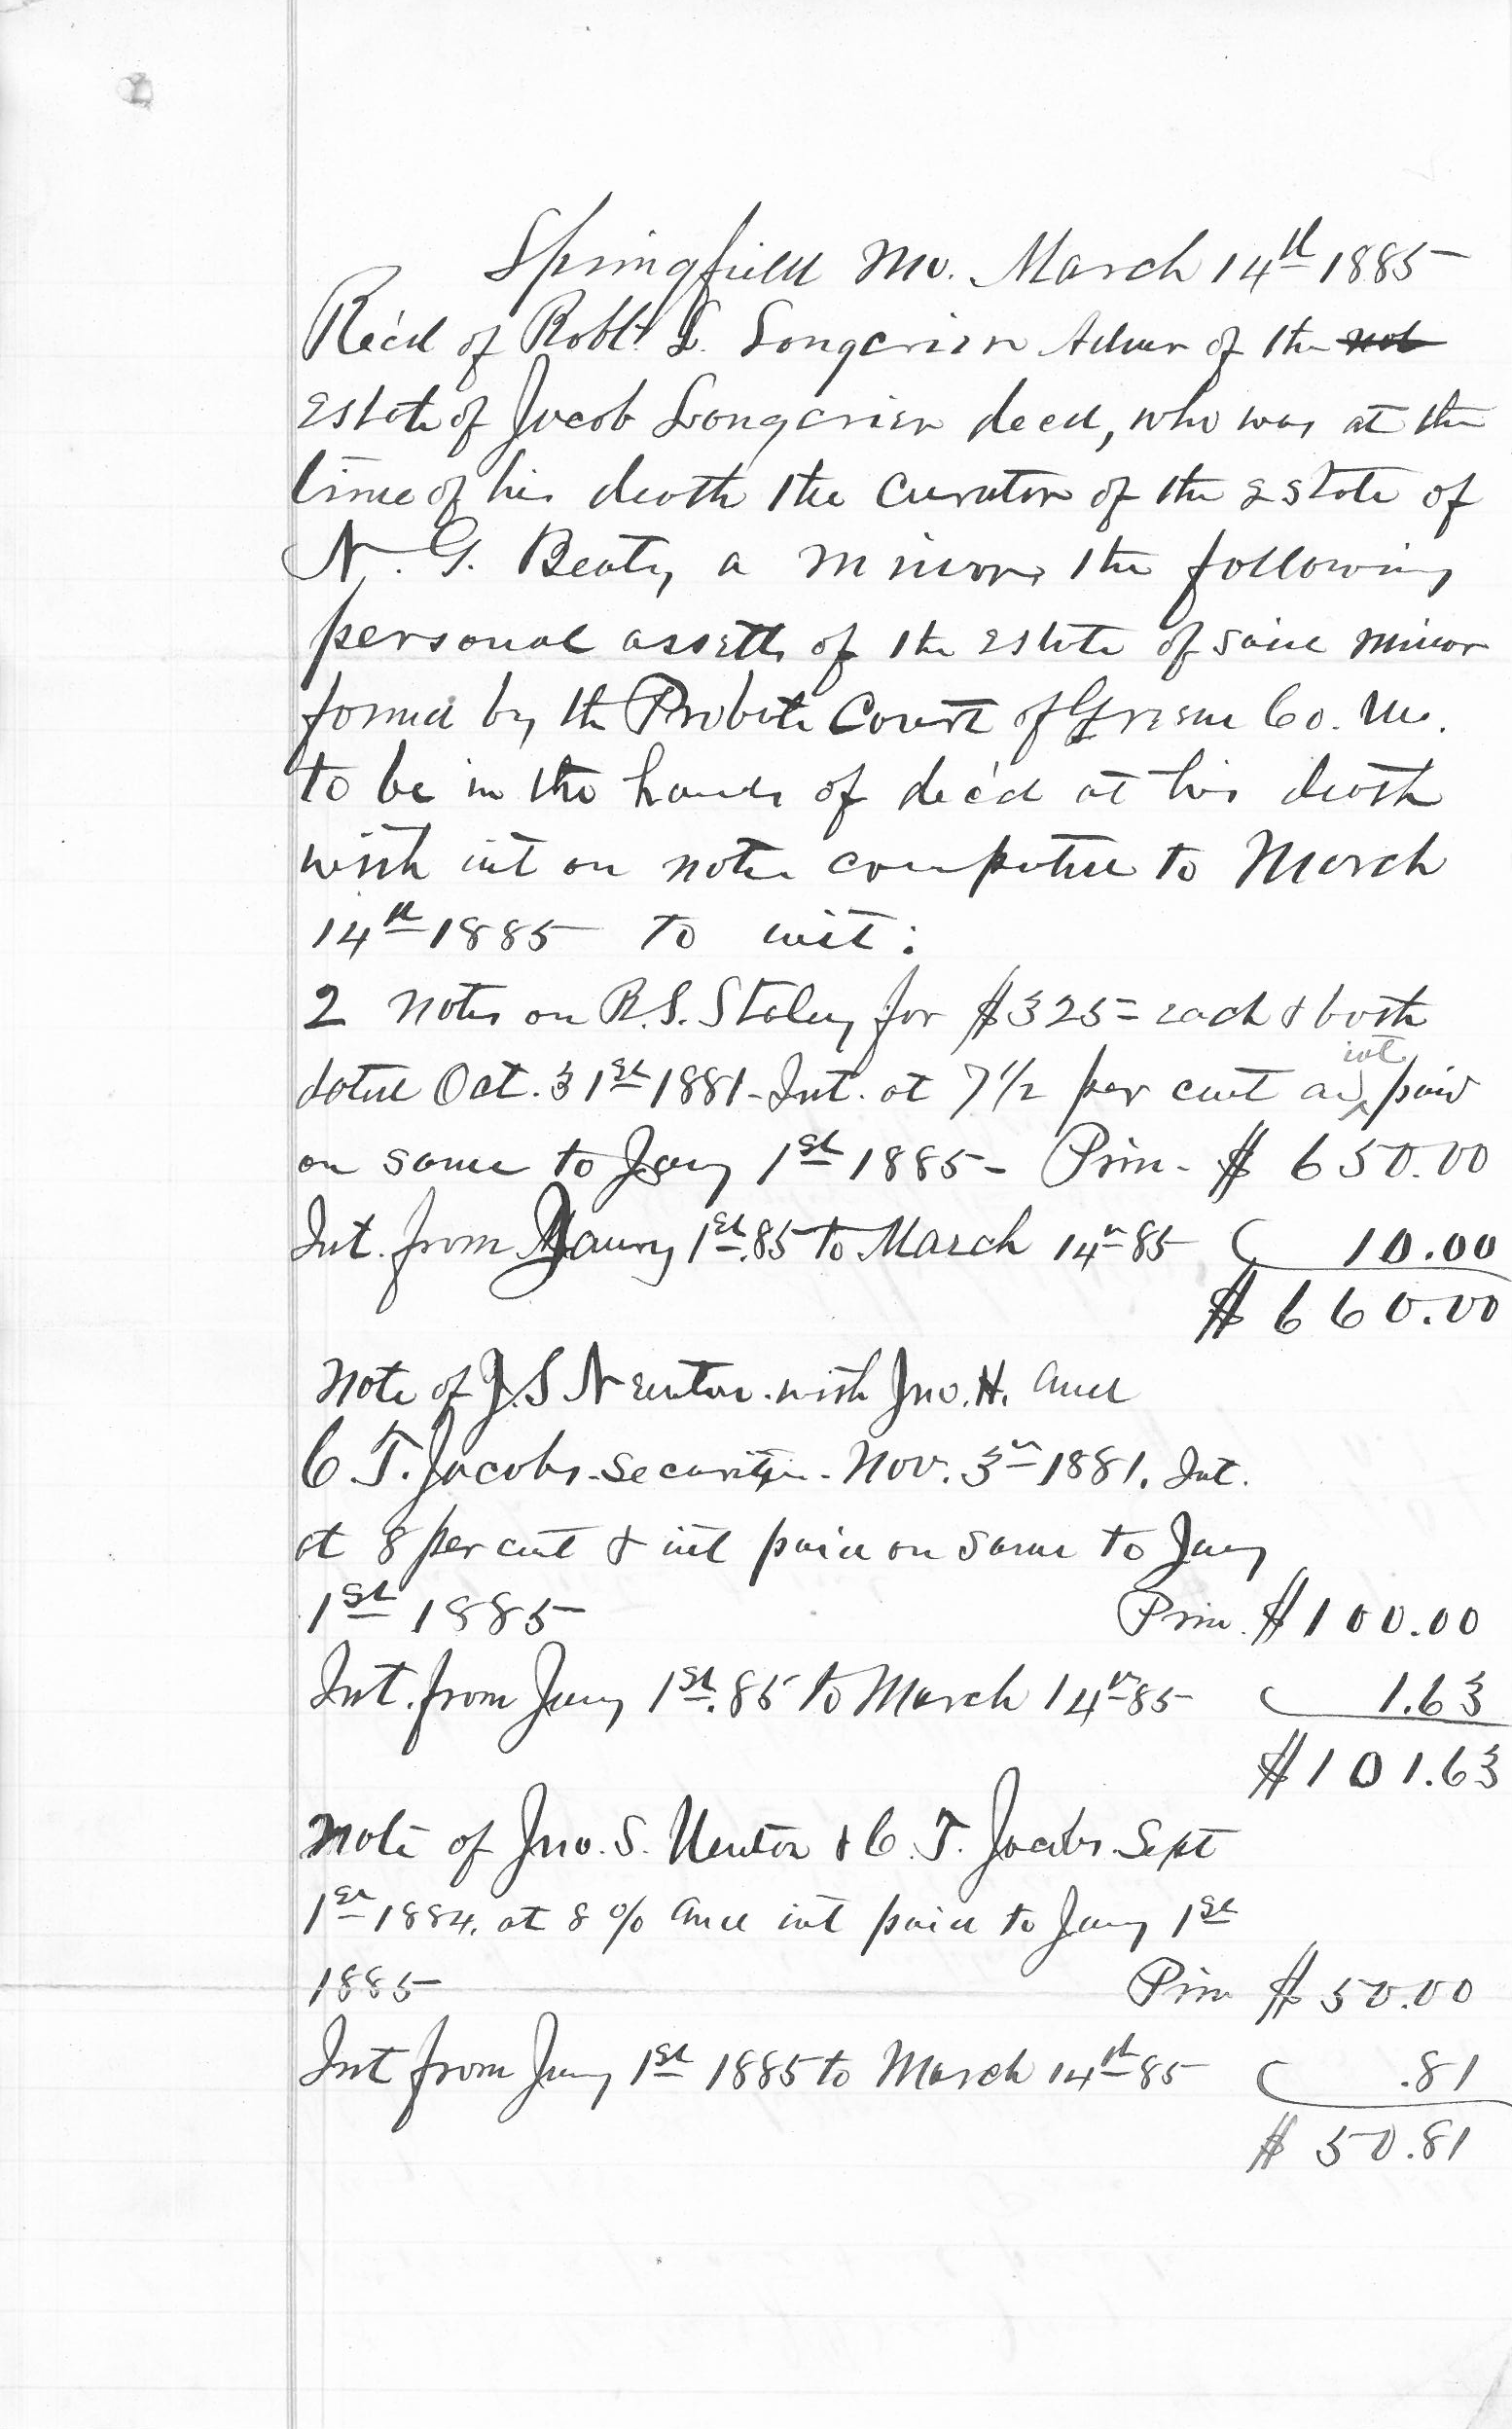 Springfield Mo. March 14th 1885
Rec'd of Robt. L. Longcrier Admr of the
Estate of Jacob Longcrier decd, who was at the
time of his death the curator of the Estate of
N. G. Beaty a minor, the following
personal assetts of the Estate of said minor
found by the Probate Court of Greene Co. Mo.
to be in the hands of dec'd at his death
with int on notes computed to March
14th 1885 to wit:
2 notes on R. S. Staley for $325= each & both
dated Oct. 31st 1881 - Int. at 7 1/2 per cent and int paid
on same to Jany 1st 1885 - Prin - $ 650.00
Int. from Jauny 1st .85 to March 14th 85 10.00
$ 660.00
Note of J. S Newton. with Jno. H. and
C. T. Jacobs - Securities - Nov. 3rd 1881. Int.
at 8 per cent & int paid on same to Jany
1st 1885 Prin. $100.00
Int. from Jany 1st .85 to March 14th 85 1.63
$101.63
Note of Jno. S. Newton & C. T. Jacobs Sept
1st 1884. at 8 % and int paid to Jany 1st
1885 Prin $ 50.00
Int from Jany 1st 1885 to March 14th 85 .81
$ 50.81